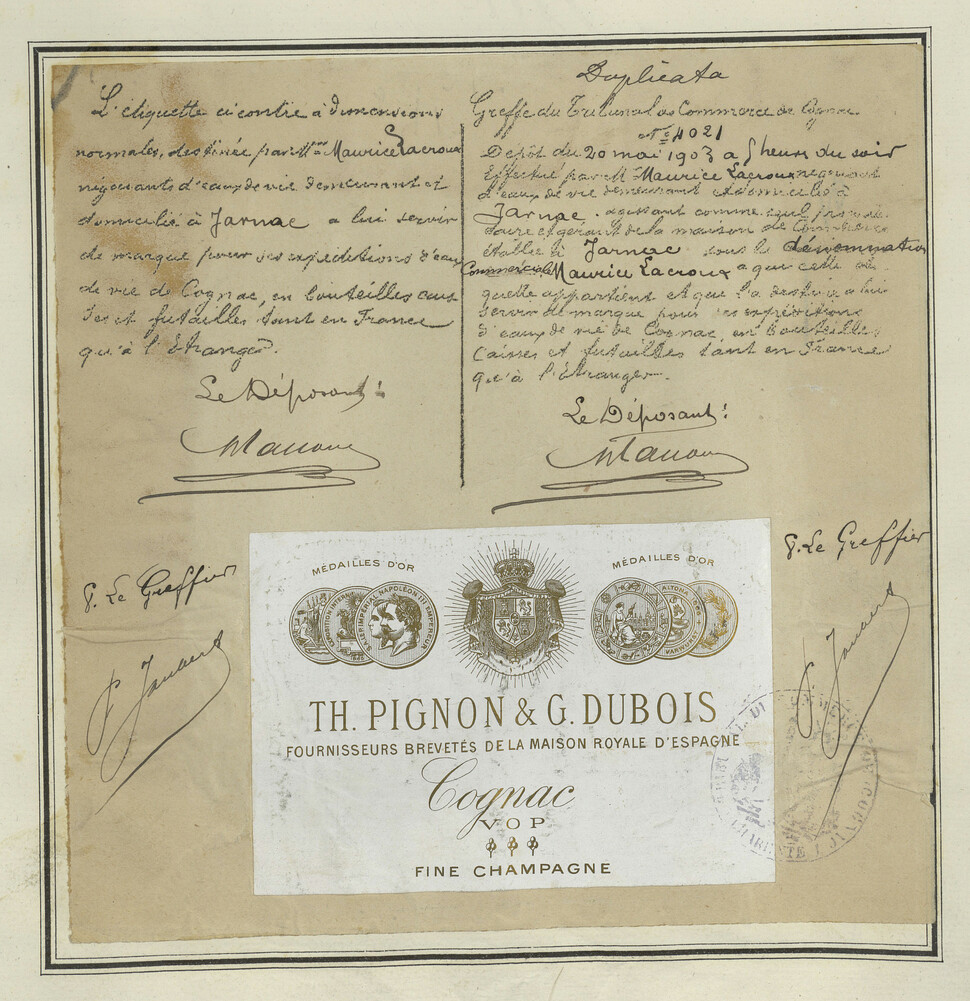 L'étiquette ci contre a dimensions
normales, destinée par Mr Maurice Lacroux
négociants d'eaux de vie demeurant et
domicilié à Jarnac a lui servir
de marque pour ses expéditions d'eaux
de vie de Cognac, en bouteilles cais
ses et futailles tant en France
qu'à l'Étranger.
Le Déposant:
P. Le Greffier
Duplicata
Greffe du Tribunal de Commerce de Cognac
No 4021
Dépôt du 20 mai 1903 a 5 heure du soir
Effectué par M. Maurice Lacroux négociant
d'eaux de vie demeurant et domicilié à
Jarnac. agissant comme seul proprié
taire et gérant de la maison de Commerce
établie à Jarnac sous la dénomination
Commerciale Maurice Lacroux a qui cette éti
quette appartient et qui l'a destinée a lui
servir de marque pour ses expéditions
d'eaux de vie de Cognac, en Bouteilles,
Caisses et futailles tant en France
qu'à l'Étranger.
Le Déposant:
P. Le Greffier
MÉDAILLES D'OR
MÉDAILLES D'OR
NAPOLÉON III EMPEREUR
TH. PIGNON & G. DUBOIS
FOURNISSEURS BREVETÉS DE LA MAISON ROYALE D'ESPAGNE
Cognac
VOP
FINE CHAMPAGNE